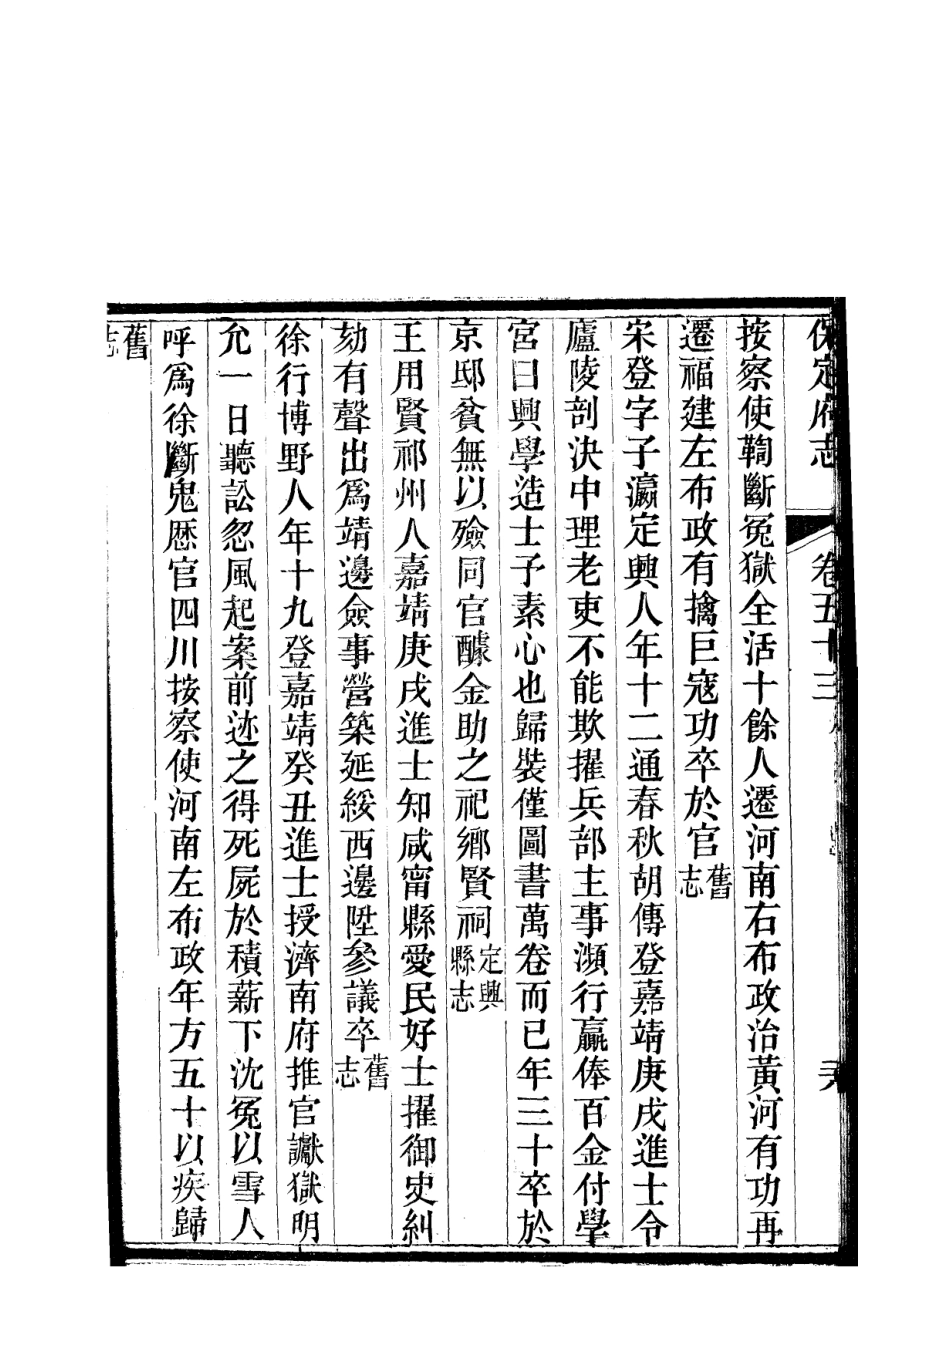 保定府志 卷五十三
按察使鞫斷冤獄全活十餘人遷河南右布政治黃河有功再
遷福建左布政有擒巨寇功卒於官舊志
宋登字子瀛定興人年十二通春秋胡傳登嘉靖庚戌進士令
廬陵剖決中理老吏不能欺擢兵部主事瀕行贏俸百金付學
宮曰興學造士子素心也歸裝僅圖書萬卷而已年三十卒於
京邸貧無以殮同官醵金助之祀鄉賢祠定興縣志
王用賢祁州人嘉靖庚戌進士知咸甯縣愛民好士擢御史糾
劾有聲出爲靖邊僉事營築延綏西邊陞參議卒舊志
徐行博野人年十九登嘉靖癸丑進士授濟南府推官讞獄明
允一日聽訟忽風起案前迹之得死屍於積薪下沈冤以雪人
呼爲徐斷鬼歷官四川按察使河南左布政年方五十以疾歸
舊志